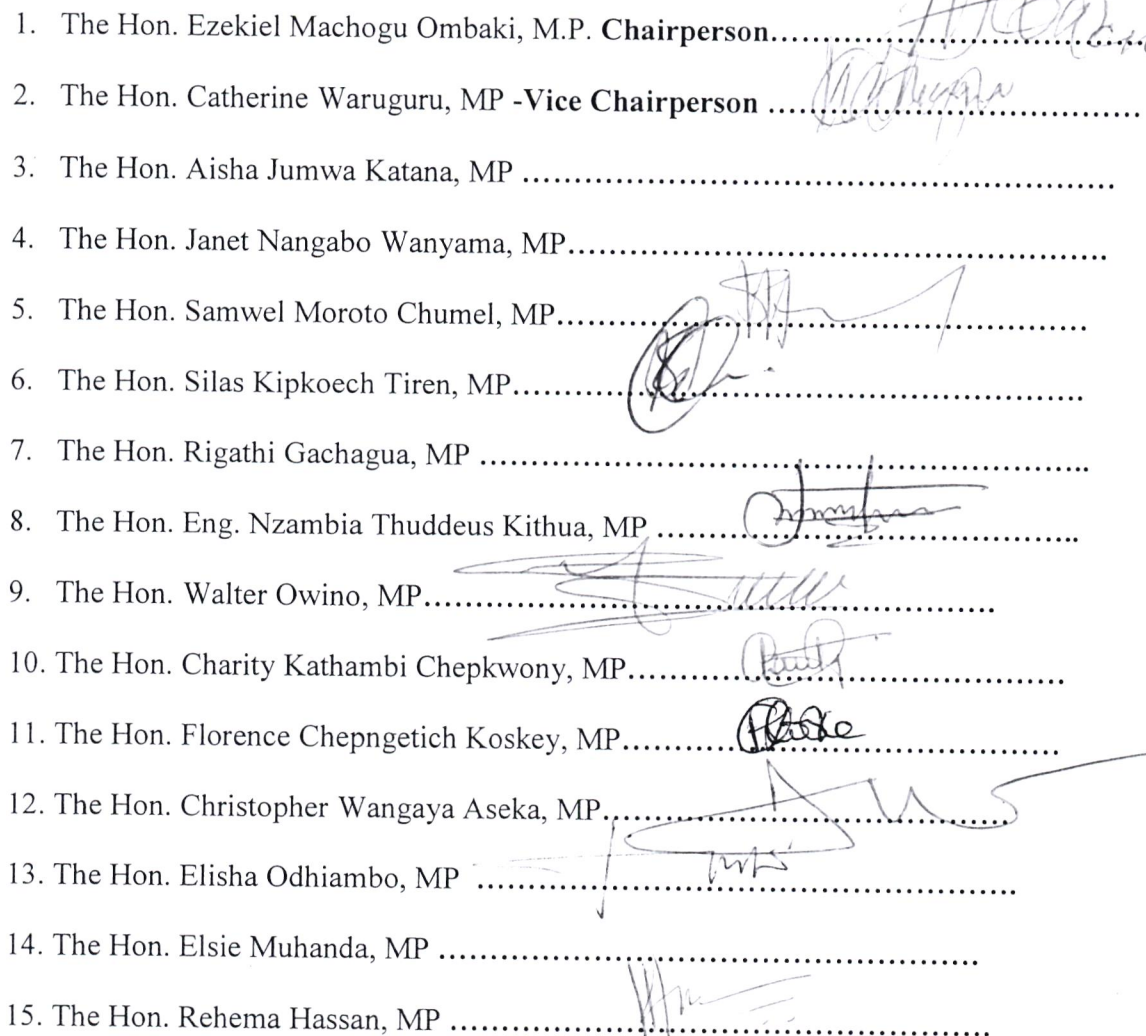 1. The Hon. Ezekiel Machogu Ombaki, M.P. Chairperson....................................................
2. The Hon. Catherine Waruguru, MP -Vice Chairperson ....................................................
3. The Hon. Aisha Jumwa Katana, MP ....................................................................
4. The Hon. Janet Nangabo Wanyama, MP..............................................................
5. The Hon. Samwel Moroto Chumel, MP..............................................................
6. The Hon. Silas Kipkoech Tiren, MP..................................................................
7. The Hon. Rigathi Gachagua, MP ......................................................................
8. The Hon. Eng. Nzambia Thuddeus Kithua, MP ..................................................
9. The Hon. Walter Owino, MP..................................................................
10. The Hon. Charity Kathambi Chepkwony, MP..................................................
11. The Hon. Florence Chepngetich Koskey, MP..................................................
12. The Hon. Christopher Wangaya Aseka, MP..................................................
13. The Hon. Elisha Odhiambo, MP ..............................................................
14. The Hon. Elsie Muhanda, MP ..............................................................
15. The Hon. Rehema Hassan, MP ..............................................................